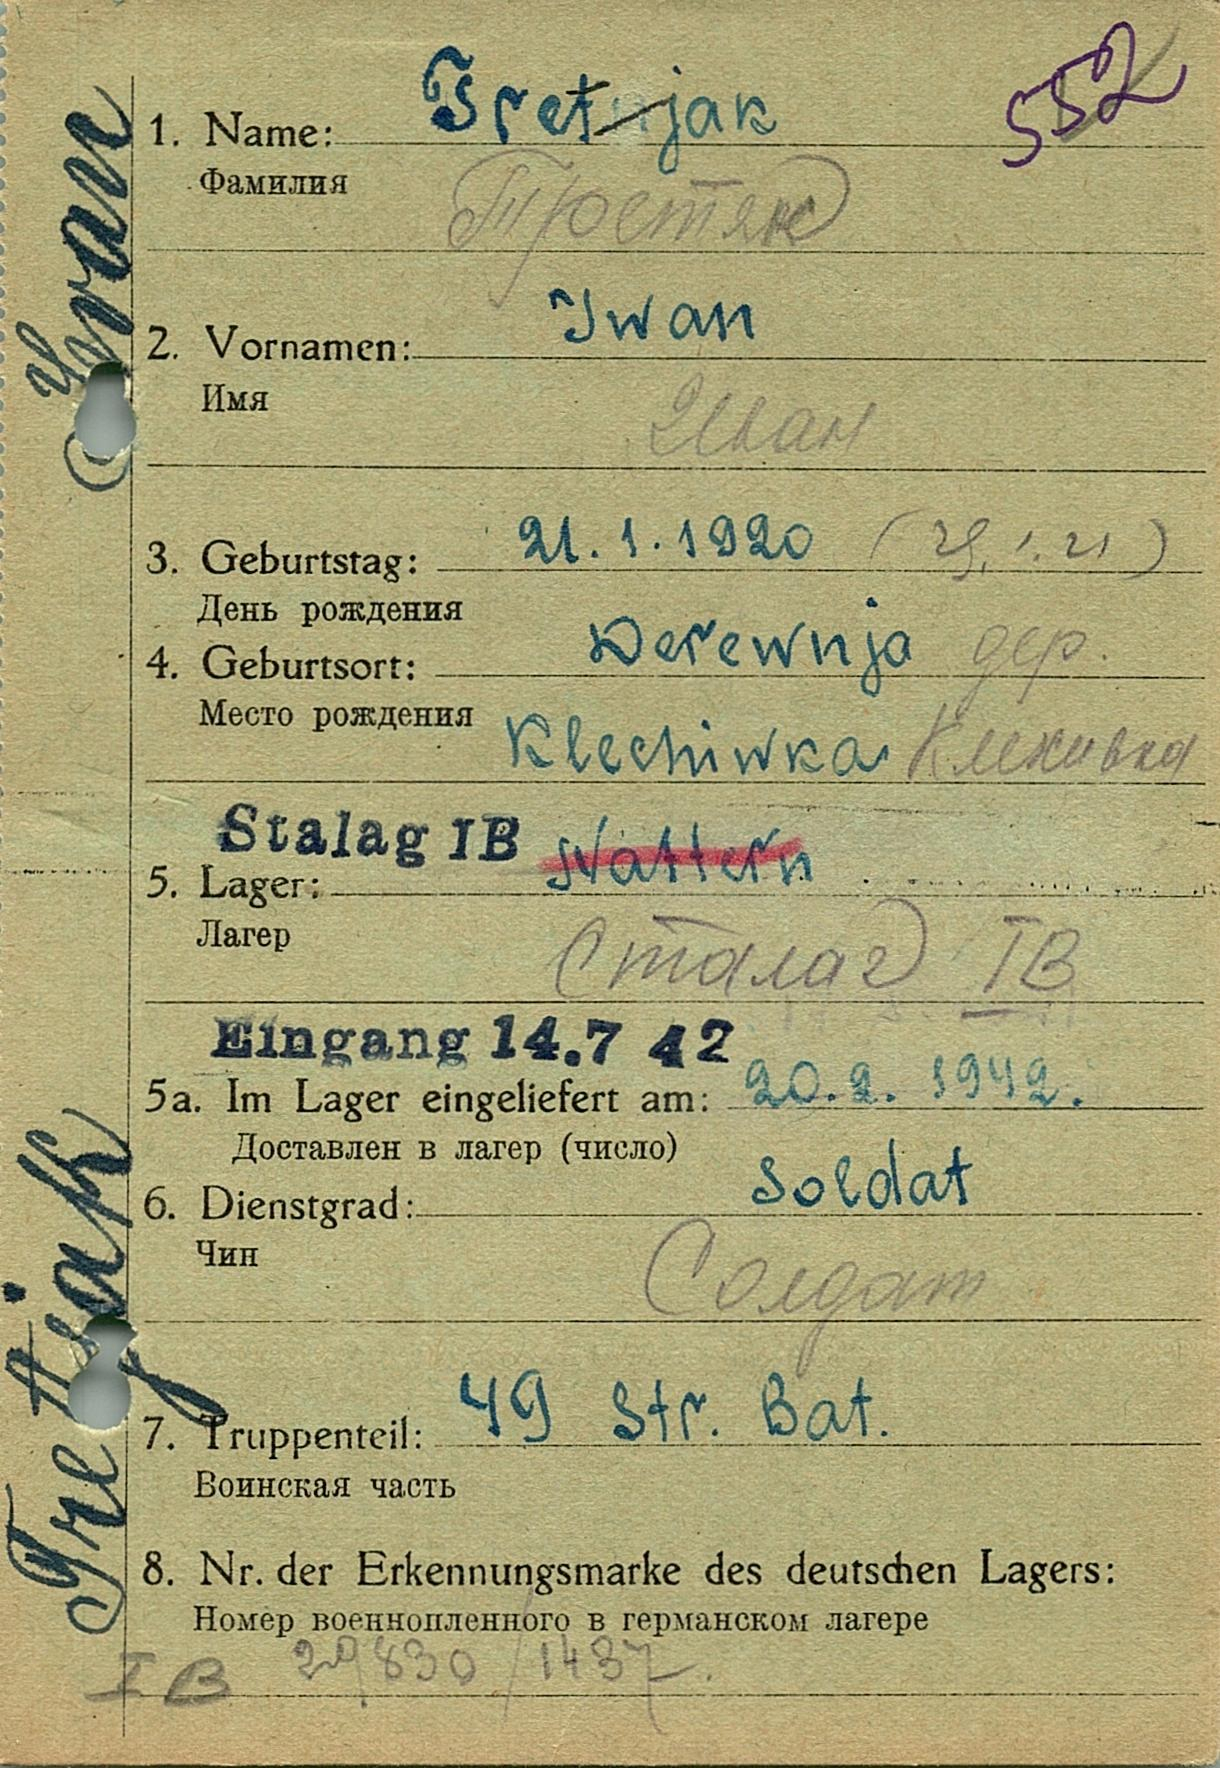 552
1. Name: Tretjak
Фамилия
Третяк
2. Vornamen: Iwan
Имя
Иван
3. Geburtstag: 21.1.1920
День рождения
4. Geburtsort: Derewnja дер.
Место рождения Klechiwka Клехивка
Stalag IB
5. Lager: Nattern
Лагер
Сталаг IB
Eingang 14.7 42
5a. Im Lager eingeliefert am: 20.2.1942.
Доставлен в лагер (число)
6. Dienstgrad: Soldat
Чин
Солдат
7. Truppenteil: 49 Str. Bat.
Воинская часть
8. Nr. der Erkennungsmarke des deutschen Lagers:
Номер военнопленного в германском лагере
IB 29830/1437.
Tretjak Iwan